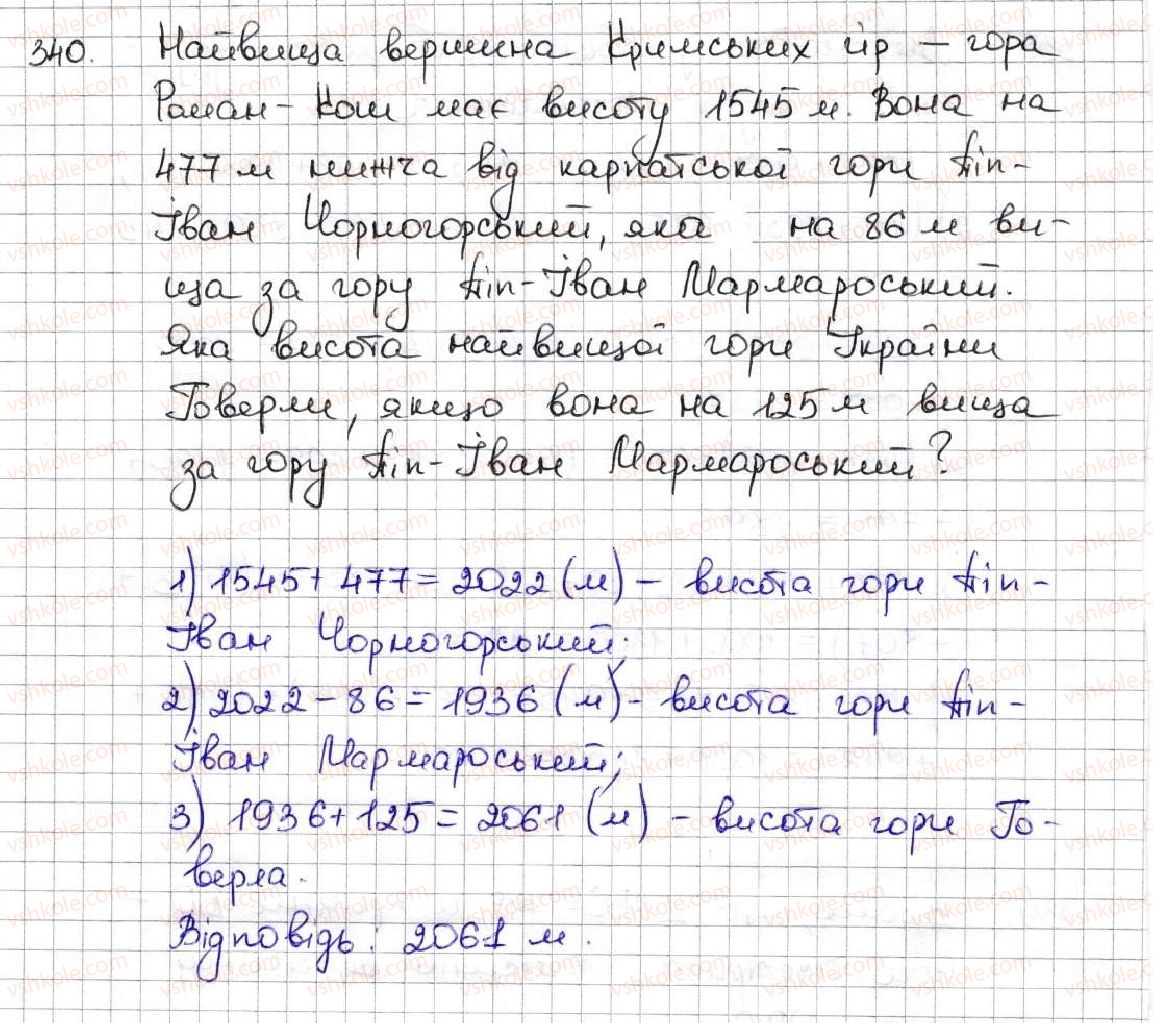 340. Найвища вершина Кримських гір – гора
Роман-Кош має висоту 1545 м. Вона на
477 м нижча від карпатської гори Піп-
Іван Чорногорський, яка на 86 м ви-
ща за гору Піп-Іван Мармароський.
Яка висота найвищої гори України
Говерли, якщо вона на 125 м вища
за гору Піп-Іван Мармароський?
1) 1545 + 477 = 2022 (м) – висота гори Піп-
Іван Чорногорський;
2) 2022 – 86 = 1936 (м) - висота гори Піп-
Іван Мармароський;
3) 1936 + 125 = 2061 (м) – висота гори Го-
верла.
Відповідь: 2061 м.